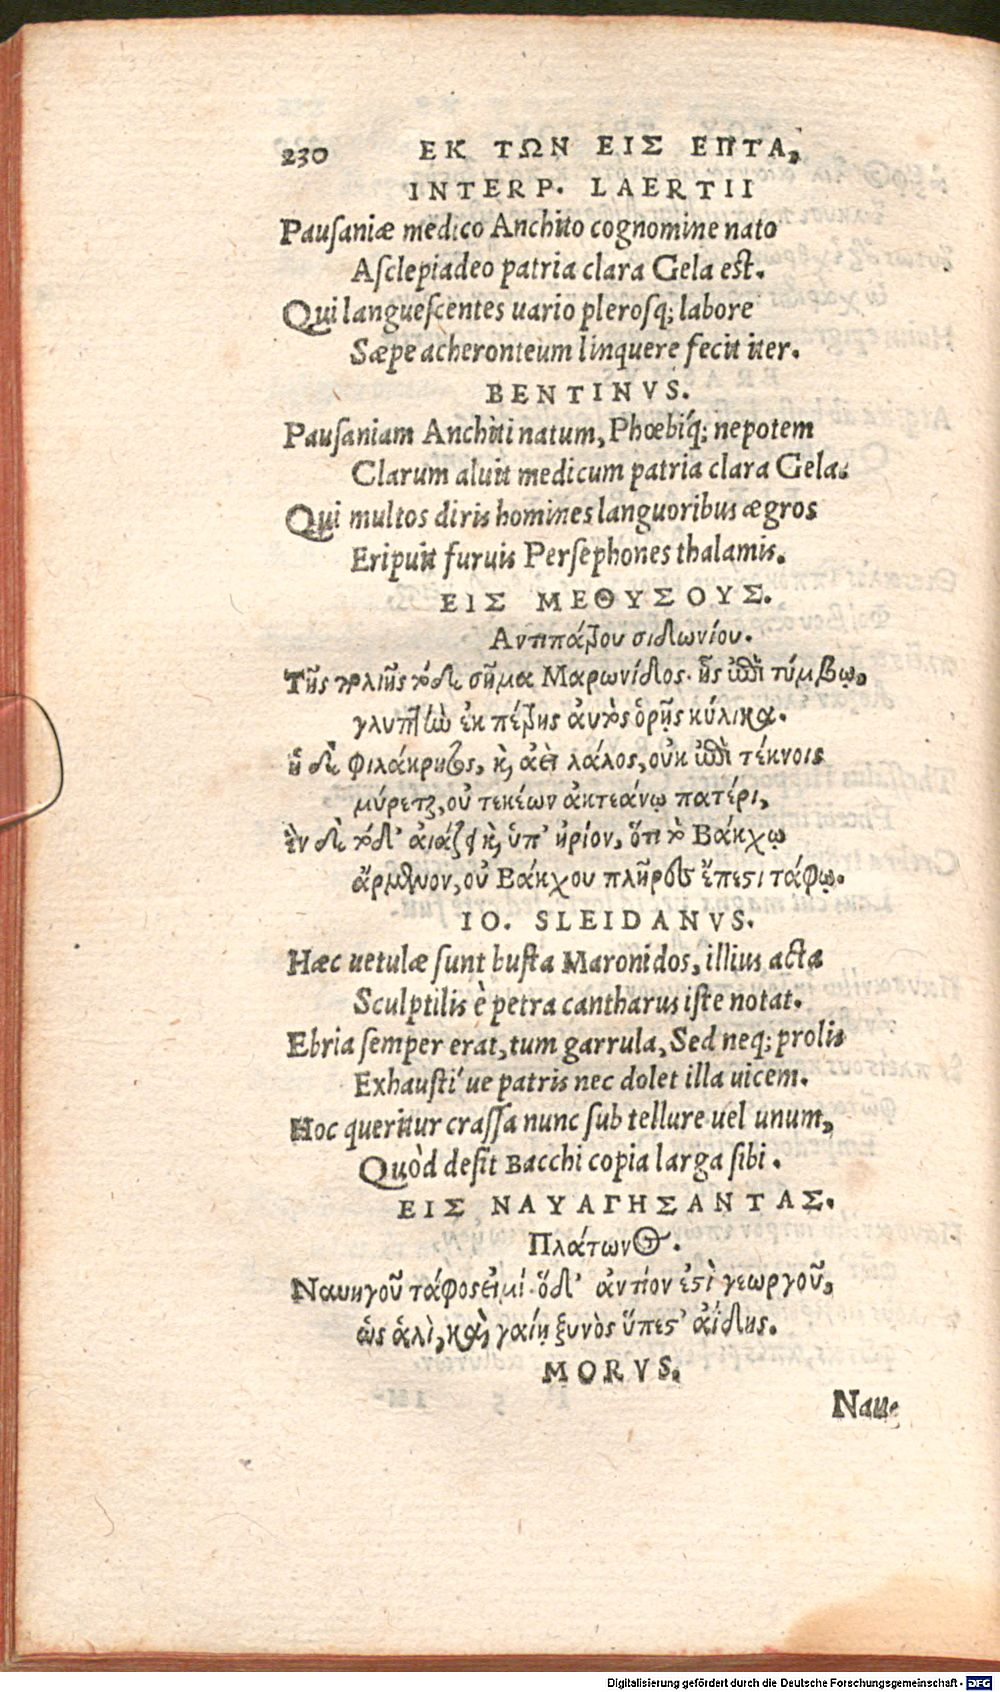 230 ΕΚ ΤΩΝ ΕΙΣ ΕΠΤΑ,
INTERP. LAERTII
Pauſaniæ medico Anchito cognomine nato
Aſclepiadeo patria clara Gela est.
Qui langueſcentes uario pleroſq; labore
Sæpe acheronteum linquere fecit iter.
BENTINVS.
Pauſaniam Anchiti natum, Phœbíq; nepotem
Clarum aluit medicum patria clara Gela.
Qui multos diris homines languoribus ægros
Eripuit furuis Perſephones thalamis.
ΕΙΣ ΜΕΘΥΣΟΥΣ.
Αντιπάτρου σιδωνίου.
Τῆς πολιῆς τόδε σῆμα Μαρωνίδος. ἧς ἐπὶ τύμβῳ.
γλυπτὴν ἐκ πέτρης αὐτὸς ὁρῇς κύλικα.
ἡ δὲ φιλάκρητος, καὶ ἀεὶ λάλος, οὐκ ἐπὶ τέκνοις
μύρεται, οὐ τεκέων ἀκτεάνῳ πατέρι,
ἓν δὲ τόδ' αἰάζει καὶ ὑπ' ἠρίον, ὅτι τὸ Βάκχῳ
ἄρμενον, οὐ Βάκχου πλῆρες ἔπεστι τάφῳ.
IO. SLEIDANVS.
Hæc uetulæ ſunt buſta Maronidos, illius acta
Sculptilis è petra cantharus iſte notat.
Ebria ſemper erat, tum garrula, Sed neq; prolis
Exhauſti' ue patris nec dolet illa uicem.
Hoc queritur craſſa nunc ſub tellure uel unum,
Quòd deſit Bacchi copia larga ſibi.
ΕΙΣ ΝΑΥΑΓΗΣΑΝΤΑΣ.
Πλάτωνος.
Ναυηγοῦ τάφος εἰμί· ὅδ' ἀντίον ἐστὶ γεωργοῦ,
ὡς ἁλὶ, καὶ γαίῃ ξυνὸς ὕπεστ' ἀΐδης.
MORVS.
Nau-
Digitalisierung gefördert durch die Deutsche Forschungsgemeinschaft - DFG